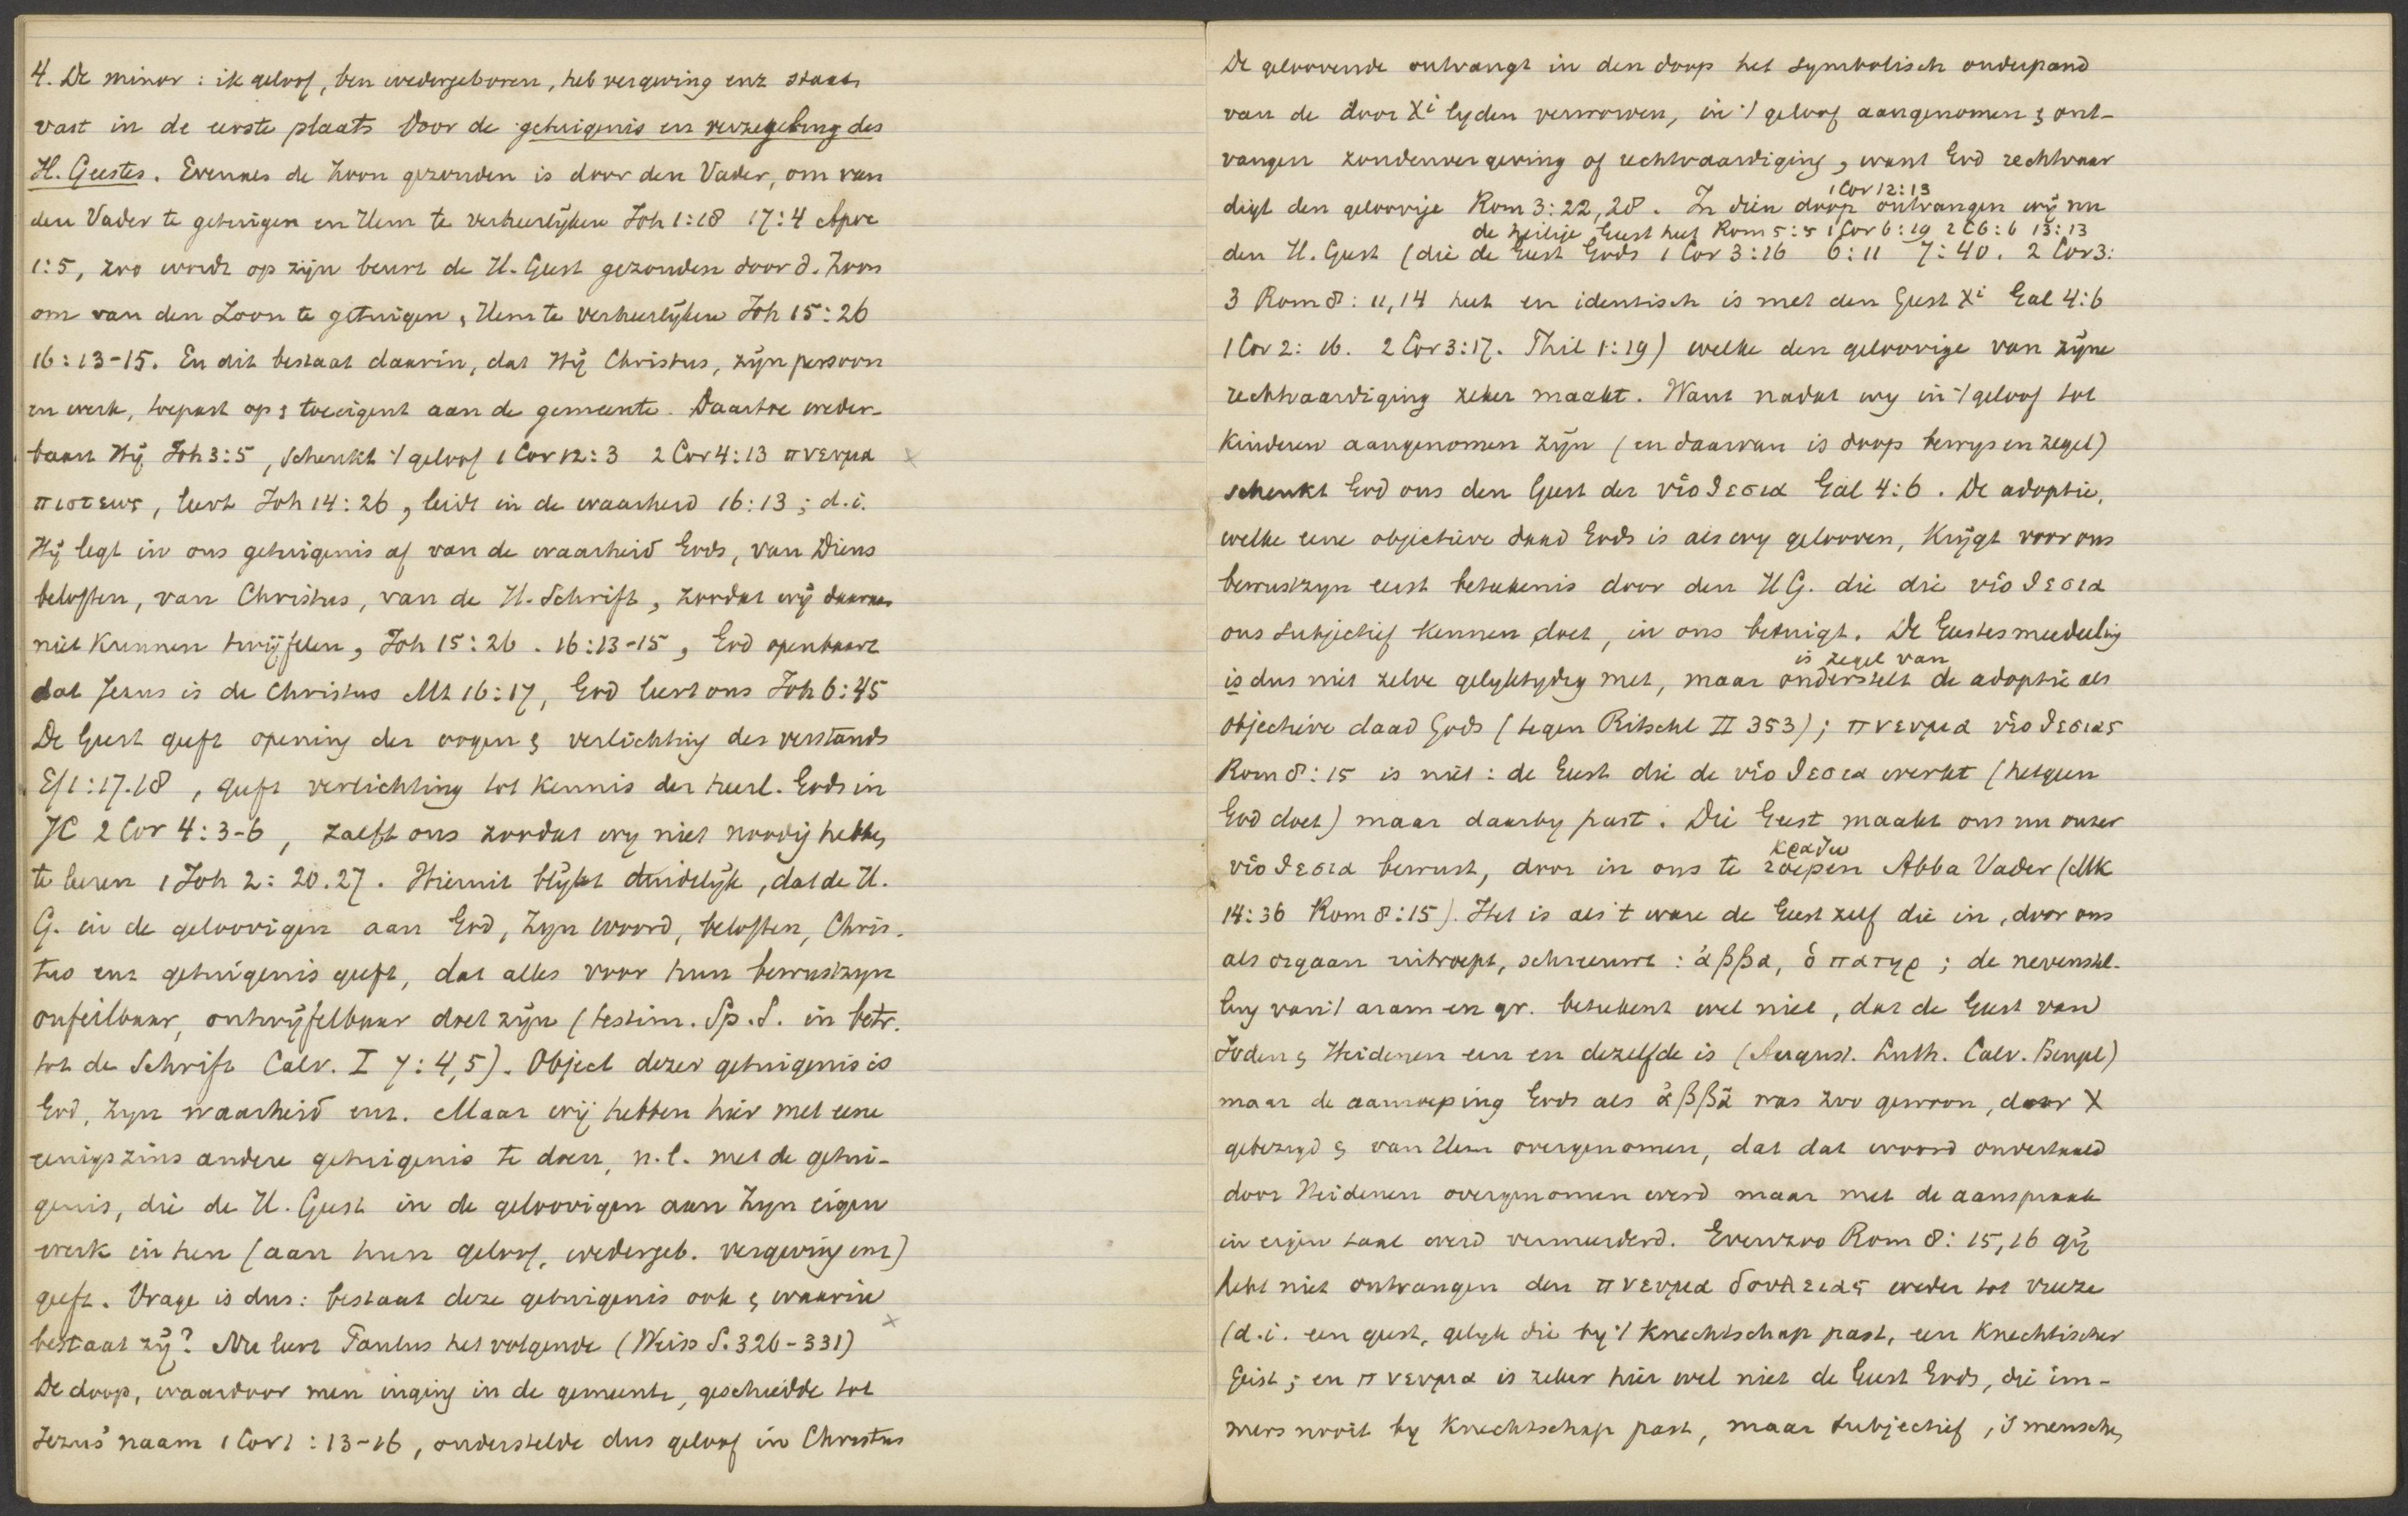 4. De minor: ik geloof, ben wedergeboren, heb vergeving enz staat
vast in de eerste plaats door de getuigenis en verzegeling des
H. Geestes. Evenals de Zoon gezonden is door den Vader, om van
den Vader te getuigen en Hem te verheerlijken Joh 1:18 17:4 Apoc
1:5, zoo wordt op zijn beurt de H. Geest gezonden door d. Zoon
om van den Zoon te getuigen, Hem te verheerlijken Joh 15:26
16:13-15. En dit bestaat daarin, dat Hij Christus, zijn persoon
en werk, toepast op & toeeigent aan de gemeente. Daartoe weder-
baart Hij Joh 3:5, schenkt 't geloof 1 Cor 12:3 2 Cor 4:13 πνευμα
πιστεως, leert Joh 14:26, leidt in de waarheid 16:13; d.i.
Hij legt in ons getuigenis af van de waarheid Gods, van Diens
beloften, van Christus, van de H. Schrift, zoodat wij daaraan
niet kunnen twijfelen, Joh 15:26. 16:13-15, God openbaart
dat Jezus is de Christus Mt 16:17, God leert ons Joh 6:45
De Geest geeft opening der oogen & verlichting des verstands
Ef 1:17.18, geeft verlichting tot kennis der heerl. Gods in
JC 2 Cor 4:3-6, zalft ons zoodat wy niet noodig hebben
te leeren 1 Joh 2:20.27. Hieruit blijkt duidelijk, dat de H.
G. in de geloovigen aan God, Zyn woord, beloften, Chris-
tus enz getuigenis geeft, dat alles voor hun bewustzyn
onfeilbaar, ontwijfelbaar doet zijn (testim. Sp. S. in betr.
tot de Schrift Calv. I 7:4,5). Object dezer getuigenis is
God, Zyn waarheid enz. Maar wij hebben hier met eene
eenigszins andere getuigenis te doen, n.l. met de getui-
genis, die de H. Geest in de geloovigen aan Zyn eigen
werk in hen (aan hun geloof, wedergeb. vergeving enz)
geeft. Vrage is dus: bestaat deze getuigenis ook & waarin
bestaat zij? Nu leert Paulus het volgende (Weiss S. 326-331)
De doop, waardoor men inging in de gemeente, geschiedde tot
Jezus' naam 1 Cor 1:13-16, onderstelde dus geloof in Christus
De geloovende ontvangt in den doop het symbolisch onderpand
van de door Xi lyden verworven, in 't geloof aangenomen & ont-
vangen zondenvergeving of rechtvaardiging, want God rechtvaar
digt den geloovige Rom 3:22,28. In dien doop ontvangen wij nu
1 Cor 12:13
de heilige Geest heet Rom 5:5 1 Cor 6:19 2 C 6:6 13:13
den H. Geest (die de Geest Gods 1 Cor 3:16 6:11 7:40. 2 Cor 3:
3 Rom 8:11,14 heet en identisch is met den Geest Xi Gal 4:6
1 Cor 2:16. 2 Cor 3:17. Phil 1:19) welke den geloovige van zijne
rechtvaardiging zeker maakt. Want nadat wy in 't geloof tot
kinderen aangenomen zijn (en daarvan is doop bewys en zegel)
schenkt God ons den Geest der υἱοθεσια Gal 4:6. De adoptie,
welke eene objectieve daad Gods is als wy gelooven, krijgt voor ons
bewustzyn eerst beteekenis door den H G. die die υἱοθεσια
ons subjectief kennen doet, in ons betuigt. De Geestesmeedeeling
is zegel van
is dus niet zelve gelyktydig met, maar onderstelt de adoptie als
objectieve daad Gods (tegen Ritschl II 353); πνευμα υἱοθεσιας
Rom 8:15 is niet: de Geest die de υἱοθεσια werkt (hetgeen
God doet) maar daarby past. Die Geest maakt ons nu onzer
κραζω
υἱοθεσια bewust, door in ons te roepen Abba Vader (Mk
14:36 Rom 8:15). Het is als 't ware de Geest zelf die in, door ons
als orgaan uitroept, schreeuwt: ἀββα, ὁ πατηρ; de nevenstel-
ling van 't aram en gr. beteekent wel niet, dat de Geest van
Joden & Heidenen een en dezelfde is (August. Luth. Calv. Bengel)
maar de aanroeping Gods als ἀββᾶ was zoo gewoon, door X
gebezigd & van Hem overgenomen, dat dat woord onvertaald
door Heidenen overgenomen werd maar met de aanspraak
in eigen taal werd vermeerderd. Evenzoo Rom 8:15,16 gij
hebt niet ontvangen den πνευμα δουλειας weder tot vreeze
(d.i. een geest, gelyk die by 't knechtschap past, een knechtischer
Geist; en πνευμα is zeker hier wel niet de Geest Gods, die im-
mers nooit by knechtschap past, maar subjectief, 's menschen